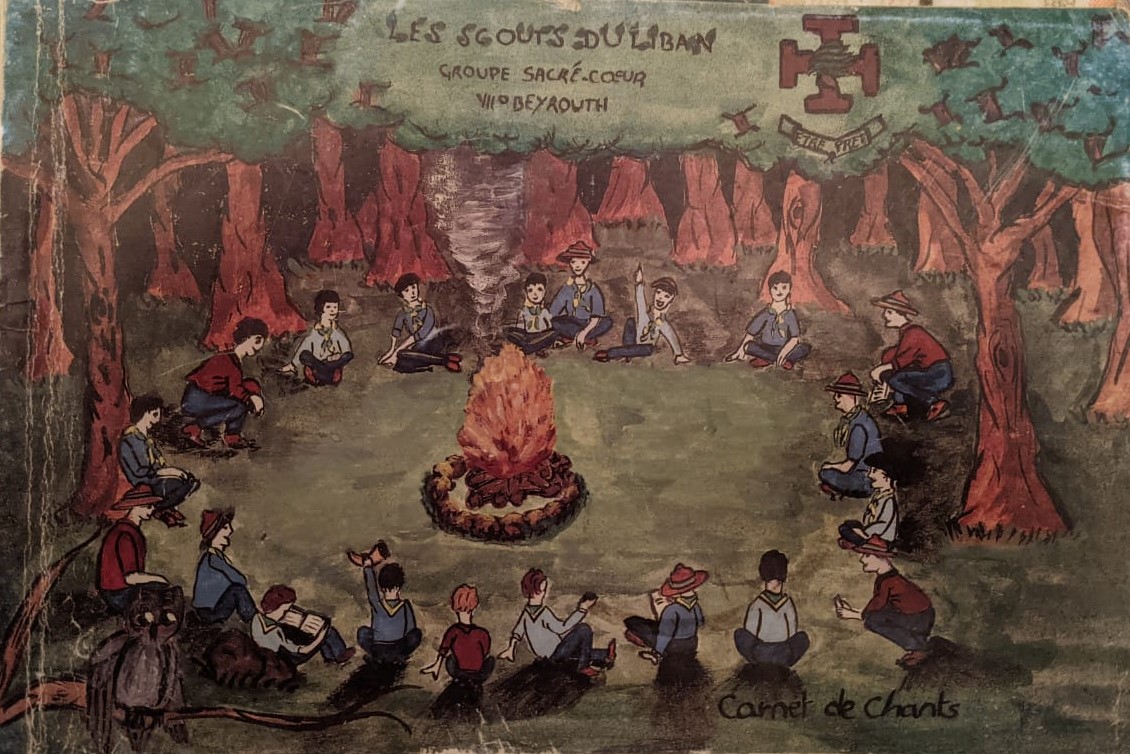 LES SCOUTS DU LIBAN
GROUPE SACRÉ-COEUR
VIIº BEYROUTH
ÊTRE PRÊT
Carnet de Chants